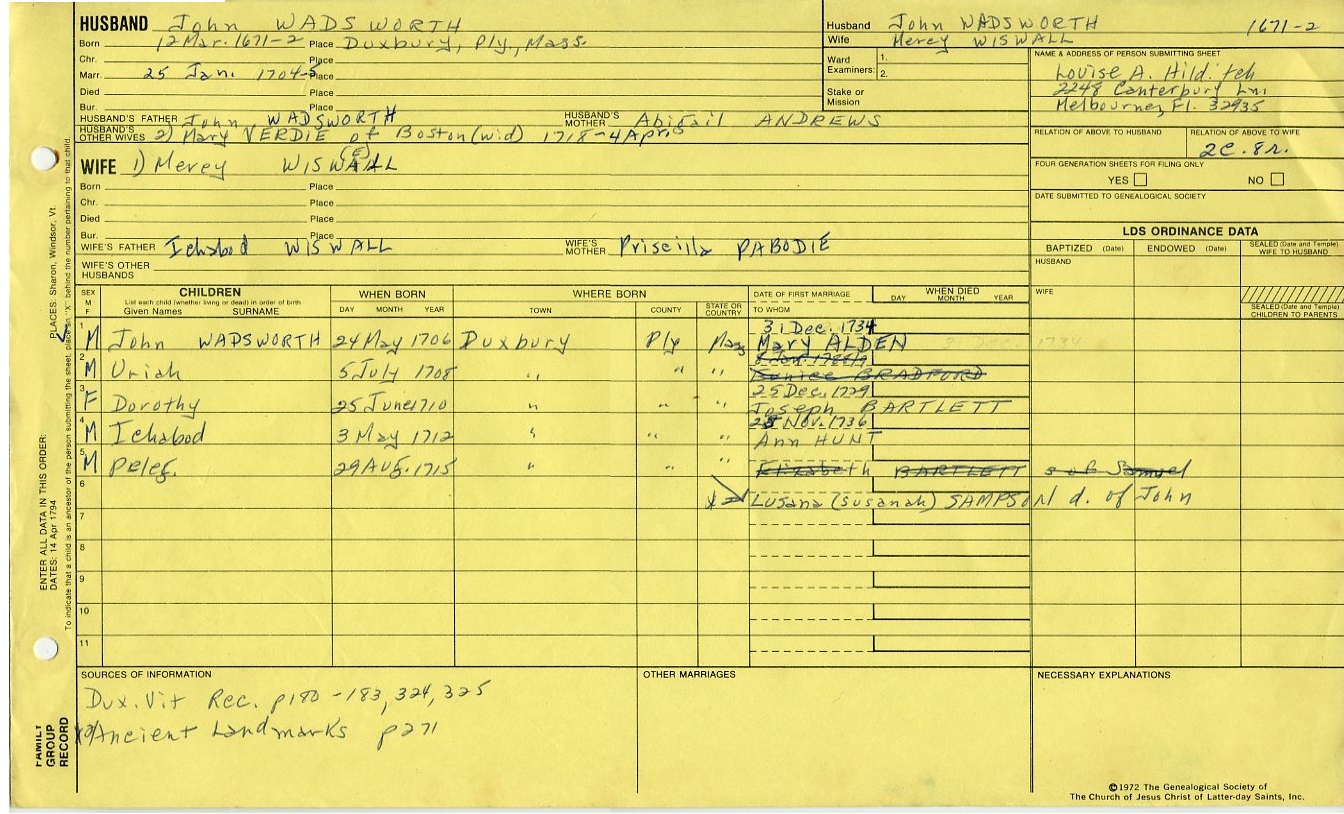 HUSBAND John WADSWORTH
Born 12 Mar. 1671-2 Place Duxbury, Ply., Mass.
Chr. Place
Marr. 25 Jan. 1704-5 Place
Died Place
Bur. Place
HUSBAND'S FATHER John WADSWORTH HUSBAND'S MOTHER Abigail ANDREWS
HUSBAND'S OTHER WIVES 2) Mary VERDIE of Boston (wid) 1718-4 Apr
Husband John WADSWORTH 1671-2
Wife Mercy WISWALL
Ward Examiners: 1. 2.
Stake or Mission
NAME & ADDRESS OF PERSON SUBMITTING SHEET
Louise A. Hilditch
2248 Canterbury Ln.
Melbourne, Fl. 32935
RELATION OF ABOVE TO HUSBAND RELATION OF ABOVE TO WIFE
2C. 8r.
FOUR GENERATION SHEETS FOR FILING ONLY
YES NO
DATE SUBMITTED TO GENEALOGICAL SOCIETY
WIFE 1) Mercy WISWALL (E)
Born Place
Chr. Place
Died Place
Bur. Place
WIFE'S FATHER Ichabod WISWALL WIFE'S MOTHER Priscilla PABODIE
WIFE'S OTHER HUSBANDS
LDS ORDINANCE DATA
BAPTIZED (Date) ENDOWED (Date) SEALED (Date and Temple) WIFE TO HUSBAND
HUSBAND
WIFE
SEALED (Date and Temple) CHILDREN TO PARENTS
SEX M F
CHILDREN
List each child (whether living or dead) in order of birth
Given Names SURNAME
WHEN BORN
DAY MONTH YEAR
WHERE BORN
TOWN COUNTY STATE OR COUNTRY
DATE OF FIRST MARRIAGE
TO WHOM
WHEN DIED
DAY MONTH YEAR
31 Dec. 1734
1 M John WADSWORTH 24 May 1706 Duxbury Ply Mass Mary ALDEN 31 DEC. 1734
2 M Uriah 5 July 1708 " " " Eunice BRADFORD
25 Dec. 1729
3 F Dorothy 25 June 1710 " " " Joseph BARTLETT
25 Nov. 1736
4 M Ichabod 3 May 1712 " " " Ann HUNT
5 M Peleg 29 Aug. 1715 " " " Elizabeth BARTLETT s of Samuel
6 Lusana (Susanah) SAMPSON d. of John
7
8
9
10
11
SOURCES OF INFORMATION
Dux. Vit Rec. p180-183, 324, 325
Ancient Landmarks p271
OTHER MARRIAGES
NECESSARY EXPLANATIONS
©1972 The Genealogical Society of
The Church of Jesus Christ of Latter-day Saints, Inc.
PLACES: Sharon, Windsor, Vt.
ENTER ALL DATA IN THIS ORDER:
DATES: 14 Apr 1794
To indicate that a child is an ancestor of the person submitting the sheet, place an "X" behind the number pertaining to that child.
FAMILY GROUP RECORD